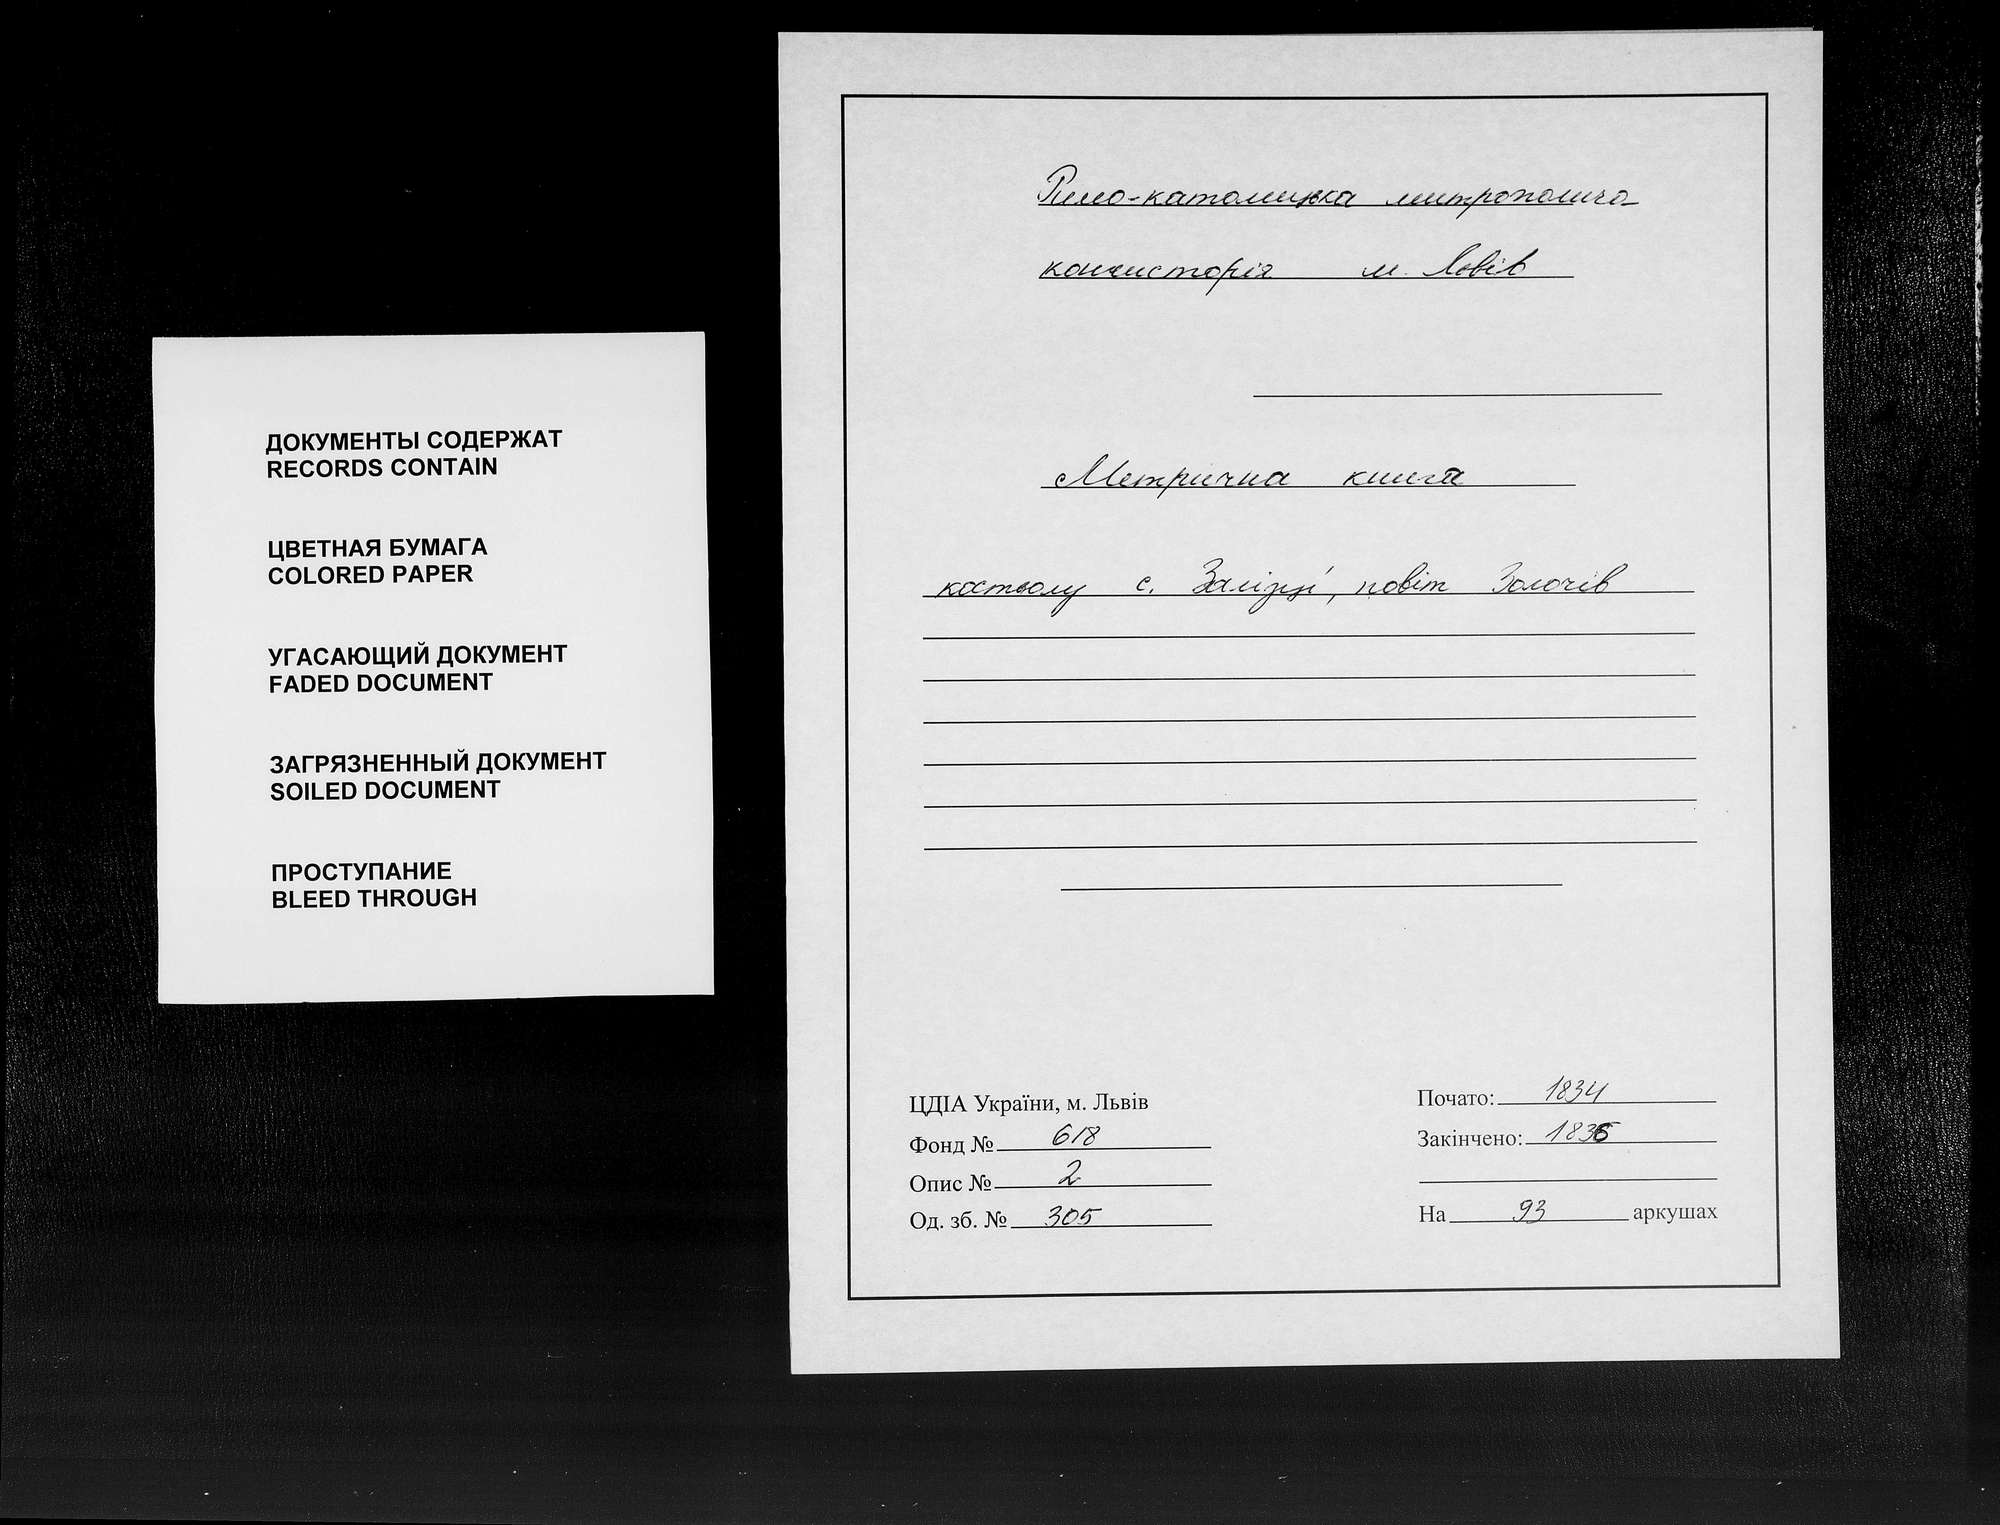 ДОКУМЕНТЫ СОДЕРЖАТ
RECORDS CONTAIN
ЦВЕТНАЯ БУМАГА
COLORED PAPER
УГАСАЮЩИЙ ДОКУМЕНТ
FADED DOCUMENT
ЗАГРЯЗНЕННЫЙ ДОКУМЕНТ
SOILED DOCUMENT
ПРОСТУПАНИЕ
BLEED THROUGH
Римо-католицька митрополича
консисторія м. Львів
Метрична книга
костьолу с. Залізці, повіт Золочів
ЦДІА України, м. Львів
Фонд № 618
Опис № 2
Од. зб. № 305
Почато: 1834
Закінчено: 1836
На 93 аркушах